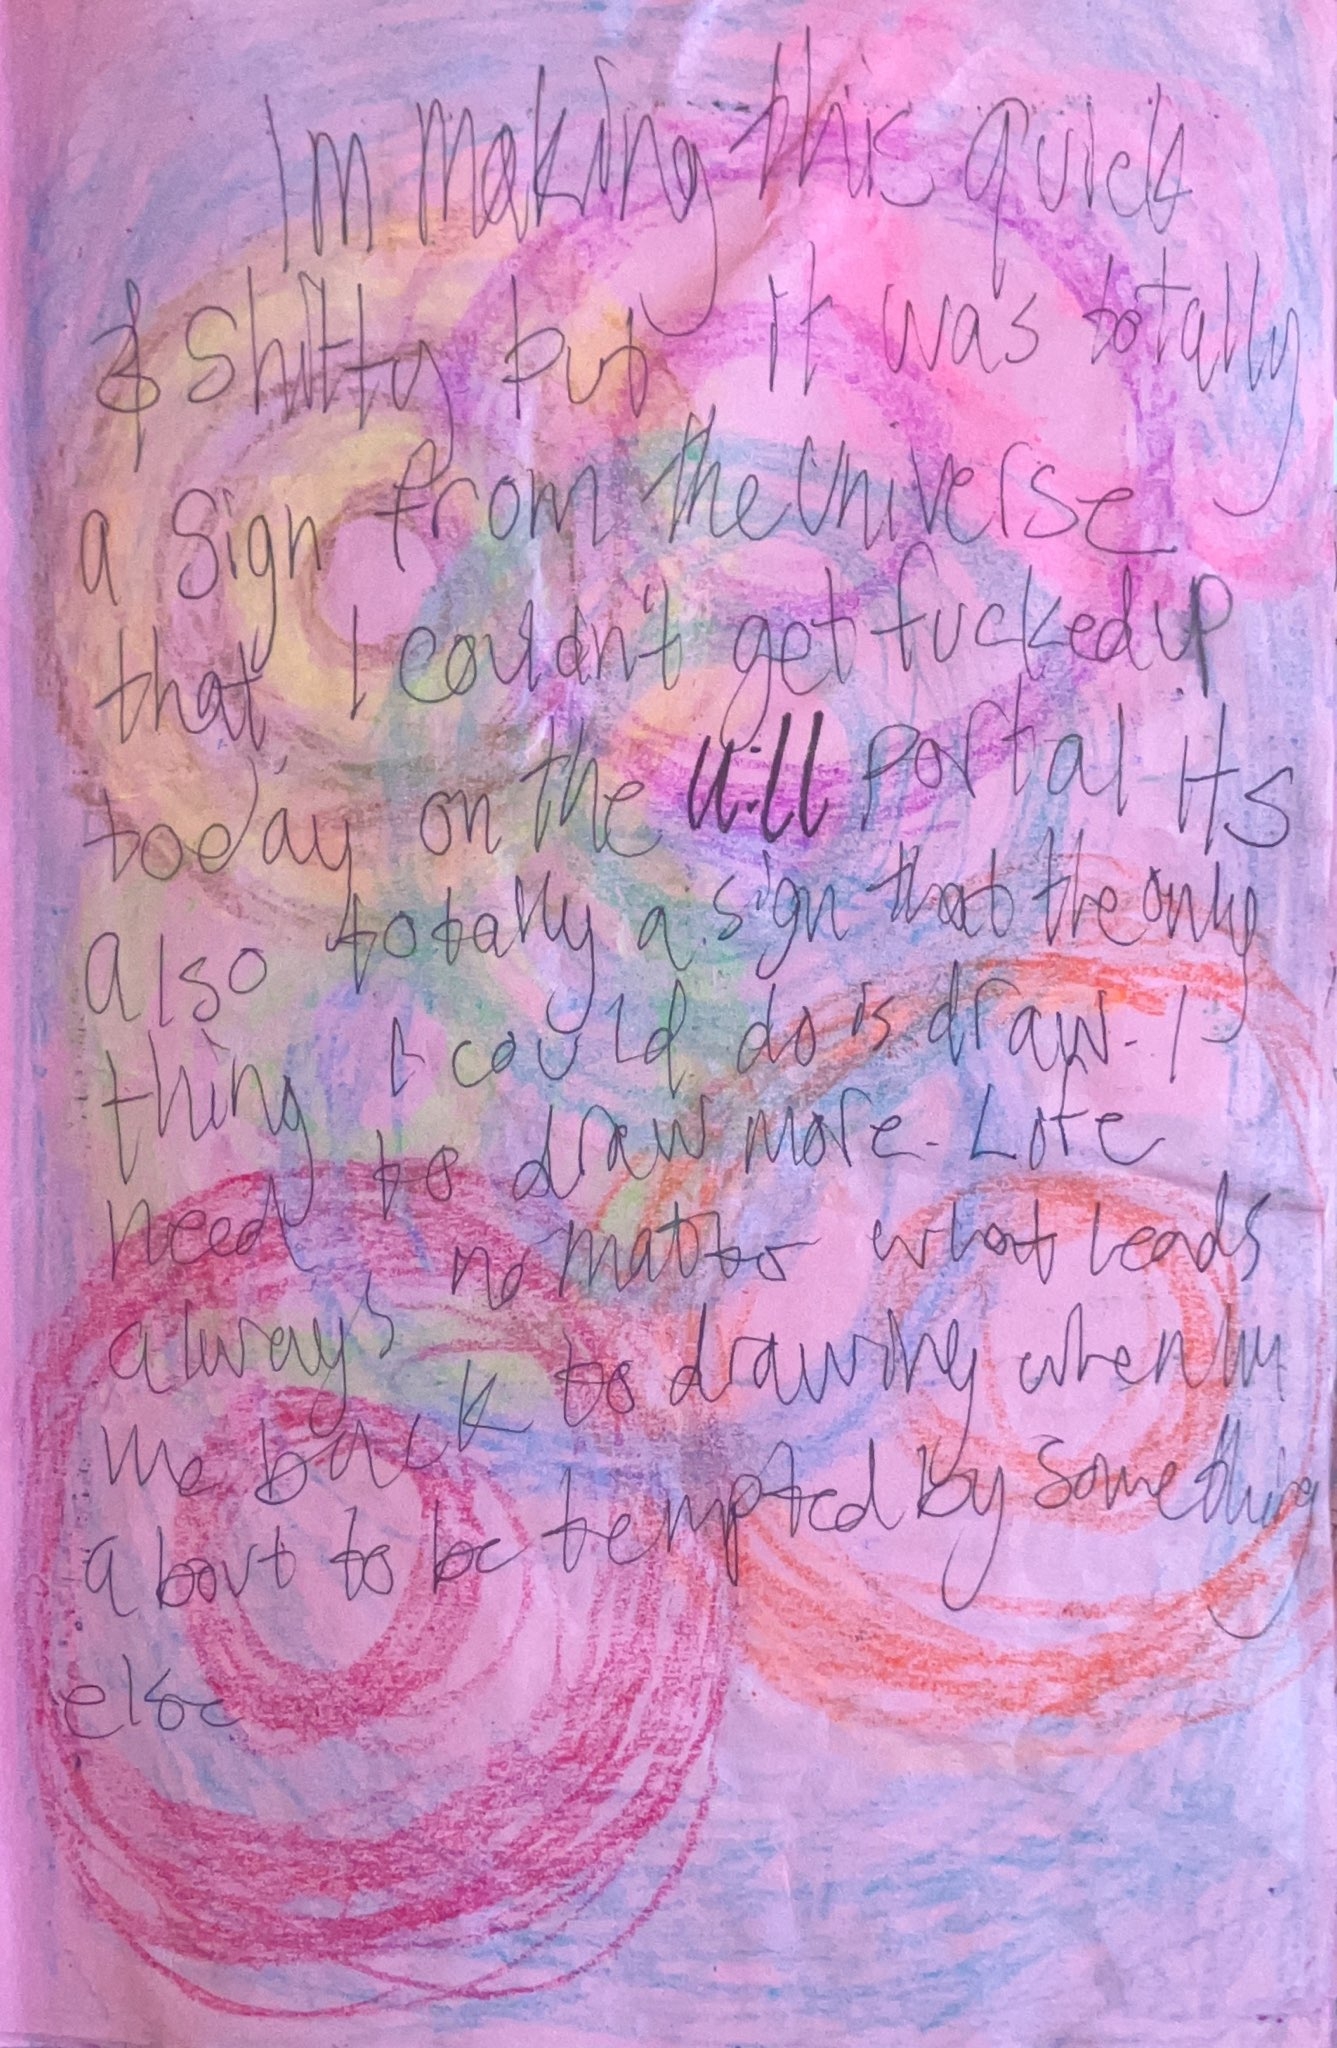 Im making this quick
& shitty but it was totally
a sign from the universe
that I couldn't get fucked up
today on the 11:11 portal Its
also totally a sign that the only
thing I could do is draw. I
need to draw more. Life
always no matter what leads
me back to drawing when im
about to be tempted by something
else